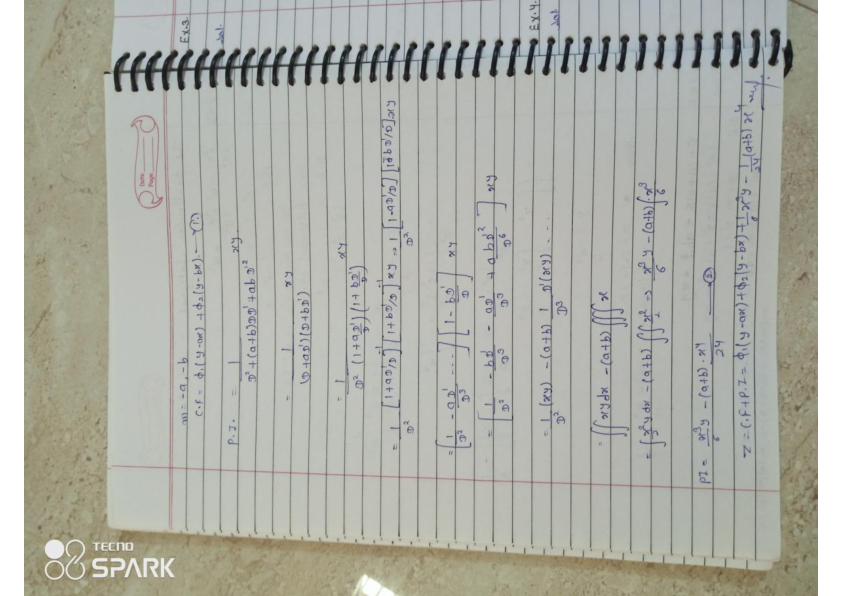 Date
Page
m = -a, -b
C.F = φ₁(y-ax) + φ₂(y-bx) - ①
P.I. = 1/(D² + (a+b)DD' + abD'²) xy
= 1/((D+aD')(D+bD')) xy
= 1/(D² (1+aD'/D)(1+bD'/D)) xy
= 1/D² [1+aD'/D]⁻¹ [1+bD'/D]⁻¹ xy → 1/D² [1-aD'/D] [1-bD'/D] xy
= [1/D² - aD'/D³ ...] [1 - bD'/D] xy
= [1/D² - bD'/D³ - aD'/D³ + abD'²/D⁶] xy
= 1/D² (xy) - (a+b) 1/D³ D'(xy) - ...
= ∫∫ xy dx - (a+b) ∫∫∫ x
= ∫ x²y/2 dx - (a+b) ∫∫ x²/2 ⇒ x³y/6 - (a+b) ∫ x³/6
PI = x³/6 y - (a+b) . x⁴/24 - ②
Z = C.F + P.I = φ₁(y-ax) + φ₂(y-bx) + 1/6 x³y - 1/24 (a+b) x⁴
Ex.3.
Sol.
Ex.4.
Sol.
TECNO
SPARK